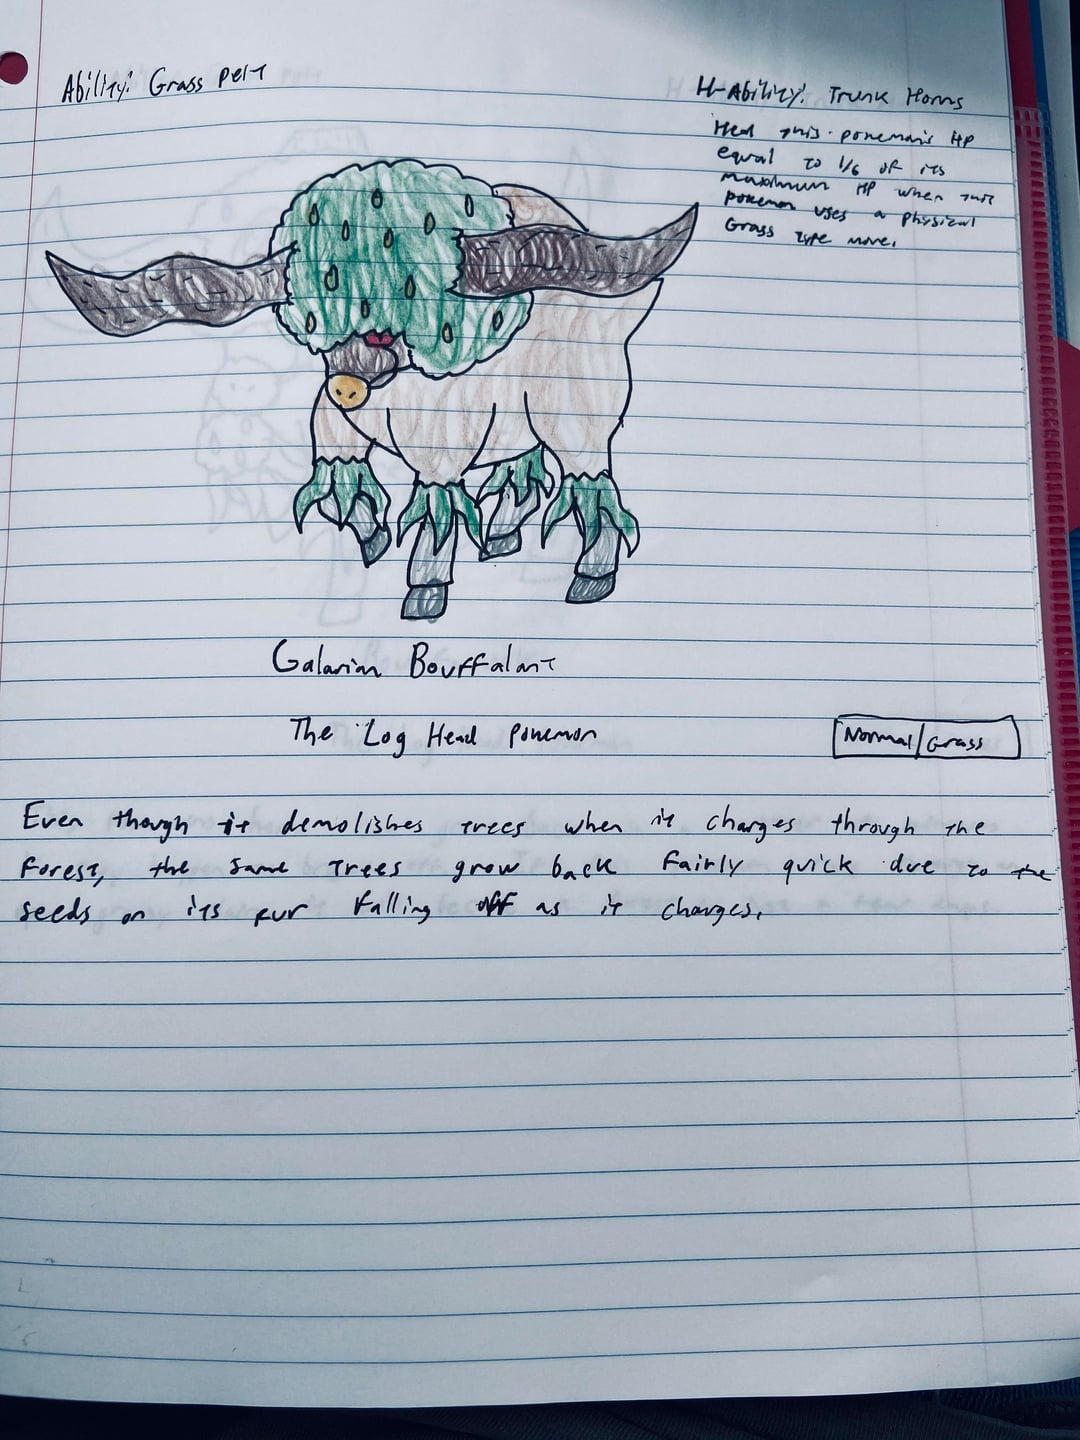 Ability: Grass Pelt
H-Ability: Trunk Horns
Heal this pokemon's HP
equal to 1/6 of its
maximum HP when this
pokemon uses a physical
Grass type move.
Galarian Bouffalant
The Log Head Pokemon
Normal/Grass
Even though it demolishes trees when it charges through the
forest, the same trees grow back fairly quick due to the
seeds on its fur falling off as it charges.